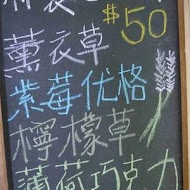 $50
薰衣草
紫莓优格
檸檬草
薄荷巧克力